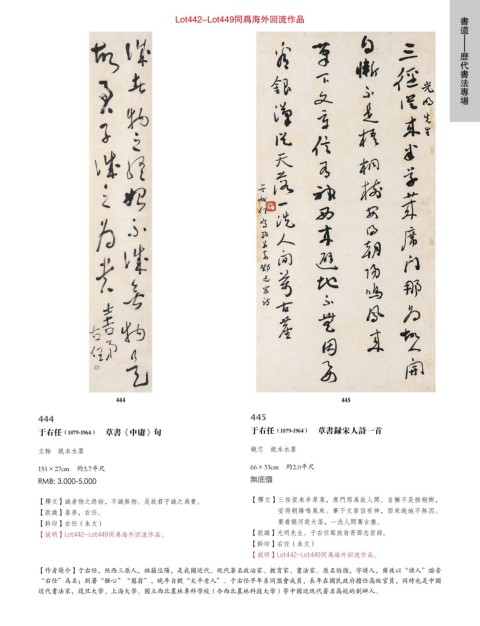 Lot442-Lot449同爲海外回流作品
書道——歷代書法專場
誠者物之終始不誠無物是
故君子誠之為貴 書勇
右任
光明先生
三徑從來半草萊席門那為故人開
自慚不是梧桐樹安得朝陽鳴鳳來
筆下文章信有神西來避地不無因要
看銀漢從天落一洗人間萬古塵
444
445
444
于右任（1879-1964） 草書《中庸》句
立軸 紙本水墨
151×27cm 約3.7平尺
RMB: 3,000-5,000
【釋文】誠者物之終始，不誠無物。是故君子誠之為貴。
【款識】書勇，右任。
【鈐印】右任（朱文）
【說明】Lot442-Lot449同爲海外回流作品。
445
于右任（1879-1964） 草書録宋人詩一首
鏡芯 紙本水墨
66×33cm 約2.0平尺
無底價
【釋文】三徑從來半草萊，席門那為故人開。自慚不是梧桐樹，
安得朝陽鳴鳳來。筆下文章信有神，西來避地不無因。
要看銀河從天落，一洗人間萬古塵。
【款識】光明先生。
【鈐印】右任（朱文）
【說明】Lot442-Lot449同爲海外回流作品。
【作者簡介】于右任，陝西三原人，祖籍涇陽，是我國近代、現代著名政治家、教育家、書法家。原名伯循，字誘人，爾後以“誘人”諧音
“右任”為名；别署“騷心”“髯翁”，晚年自號“太平老人”。于右任早年系同盟會成員，長年在國民政府擔任高級官員，同時也是中國
近代書法家，復旦大學、上海大學、國立西北農林專科學校（今西北農林科技大學）等中國近現代著名高校的創辦人。